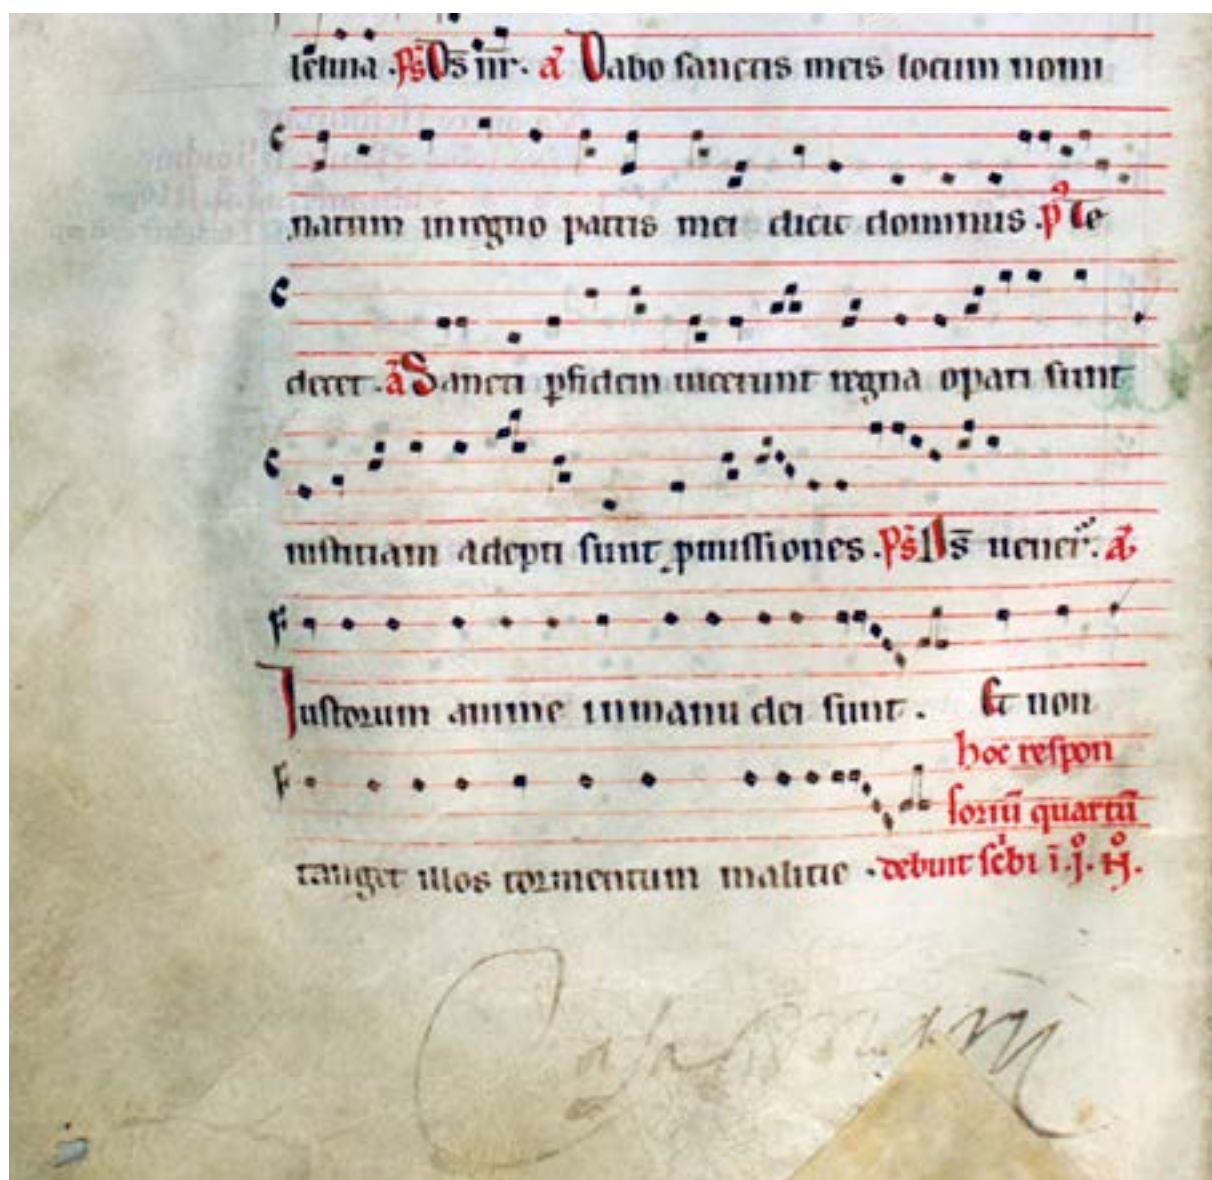 letitia . ps̄ Ds̄ nr̄. ā Dabo sanctis meis locum nomi
natum in regno patris mei dicit dominus . p̊ Te
decet . ā Sancti ꝑ fidem uicerunt regna opati sunt
iustitiam adepti sunt ꝓmissiones . ps̄ Ds̄ uener̄. ā
Iustorum anime in manu dei sunt . Et non
hoc respon
soriū quartū
tanget illos tormentum malitie . debuit sc̄bi ī .j̊.